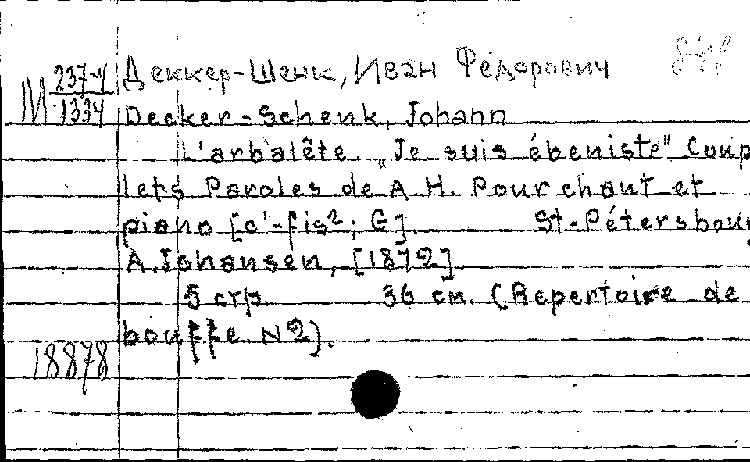 М 237-4/1334
Деккер-Шенк, Иван Федорович
Decker-Schenk, Johann
L'arbalête. „Je suis ébeniste" Coup
lets Paroles de A. H. Pour chant et
piano [c'-fis²; G]. St-Pétersbourg
A. Johansen, [1872]
5 стр. 36 см. (Repertoire de
bouffe N 2).
18878